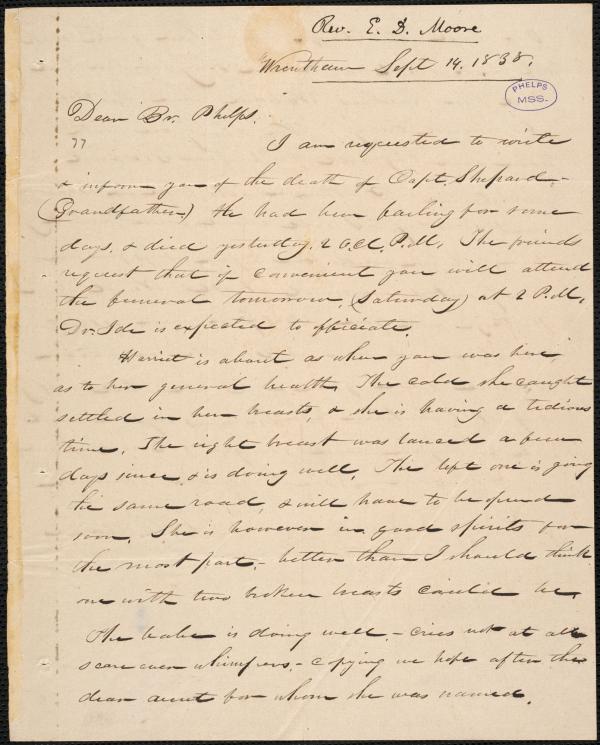 Rev. E. D. Moore
Wrentham Sept 14. 1838.
PHELPS
MSS.
Dear Br. Phelps.
77
I am requested to write
& inform you of the death of Capt. Shepard -
(Grandfather) He had been failing for some
days, & died yesterday, 2 O.Cl. P.M. The friends
request that if convenient you will attend
the funeral tomorrow (Saturday) at 2 P.M.
Dr. Ide is expected to officiate.
Harriet is about as when you was here
as to her general health. The cold she caught
settled in her breasts, & she is having a tedious
time. The right breast was lanced a few
days since, & is doing well. The left one is going
the same road, & will have to be opened
soon. She is however in good spirits for
the most part, - better than I should think
one with two broken breasts could be.
The babe is doing well, - cries not at all
scarce even whimpers, - copying we hope after the
dear aunt for whom she was named.